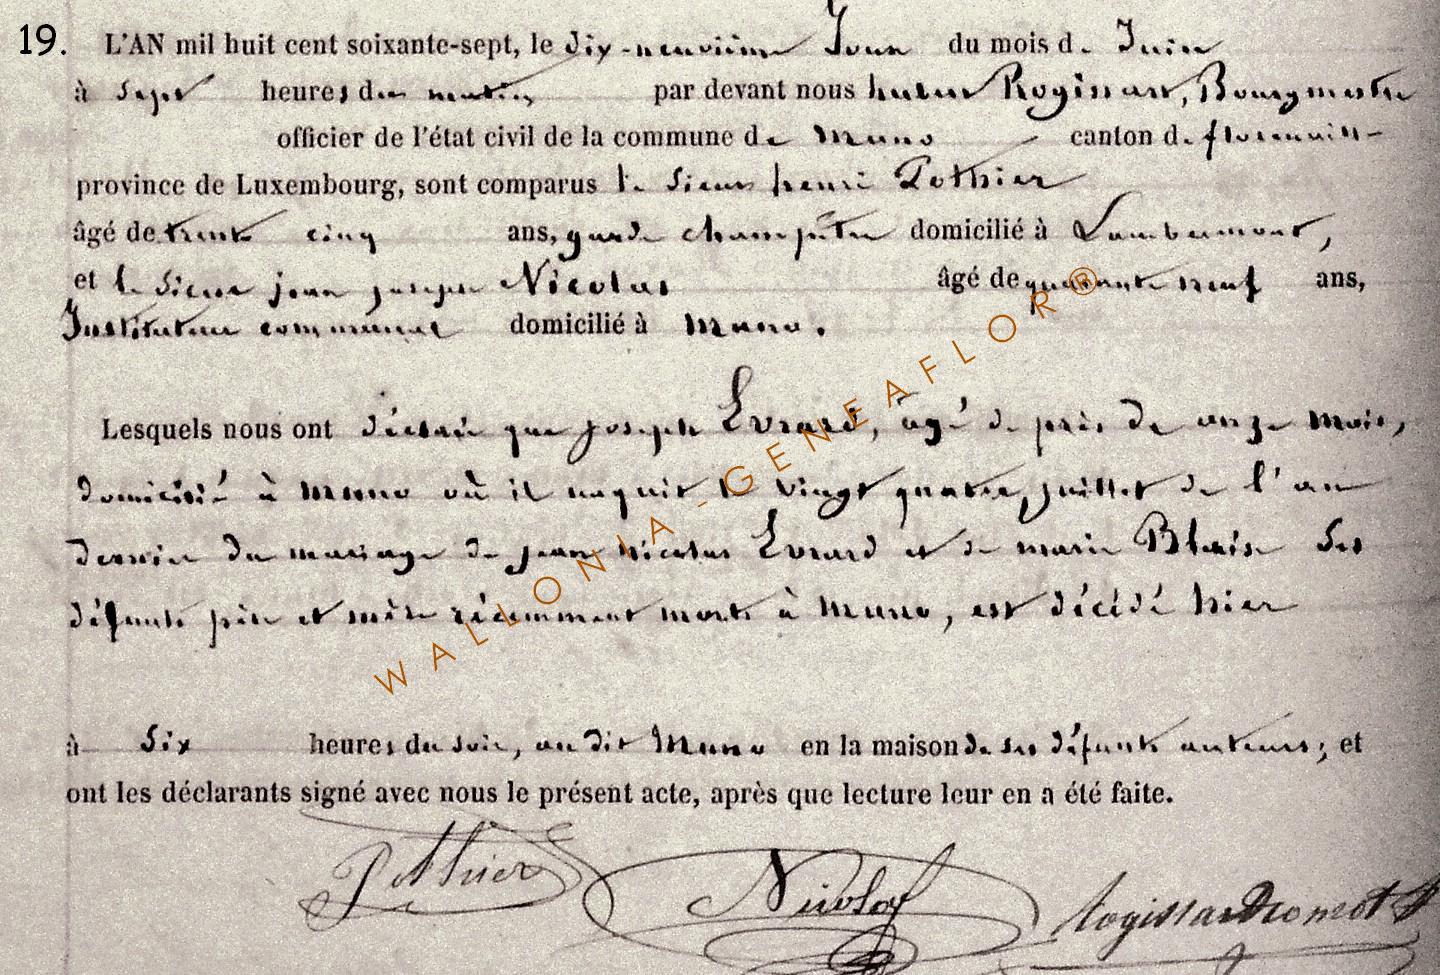 19. L'AN mil huit cent soixante-sept, le dix-neuvième Jour du mois de Juin
à Sept heures du matin par devant nous hubert Rogissart, Bourgmestre
officier de l'état civil de la commune de Muno canton de florenville
province de Luxembourg, sont comparus le Sieur henri Pothier
âgé de trente cinq ans, garde champêtre domicilié à Lambermont,
et le Sieur jean joseph Nicolas âgé de quarante neuf ans,
Instituteur communal domicilié à Muno.
Lesquels nous ont déclaré que joseph Evrard, âgé de près de onze mois,
domicilié à Muno où il naquit le vingt quatre juillet de l'an
dernier du mariage de jean nicolas Evrard et de marie Blaise Ses
défunts père et mère récemment morts à Muno, est décédé hier
à Six heures du soir, au dit Muno en la maison de ses défunts auteurs; et
ont les déclarants signé avec nous le présent acte, après que lecture leur en a été faite.
Pothier Nicolas Rogissart
WALLONIA-GENEAFLOR®